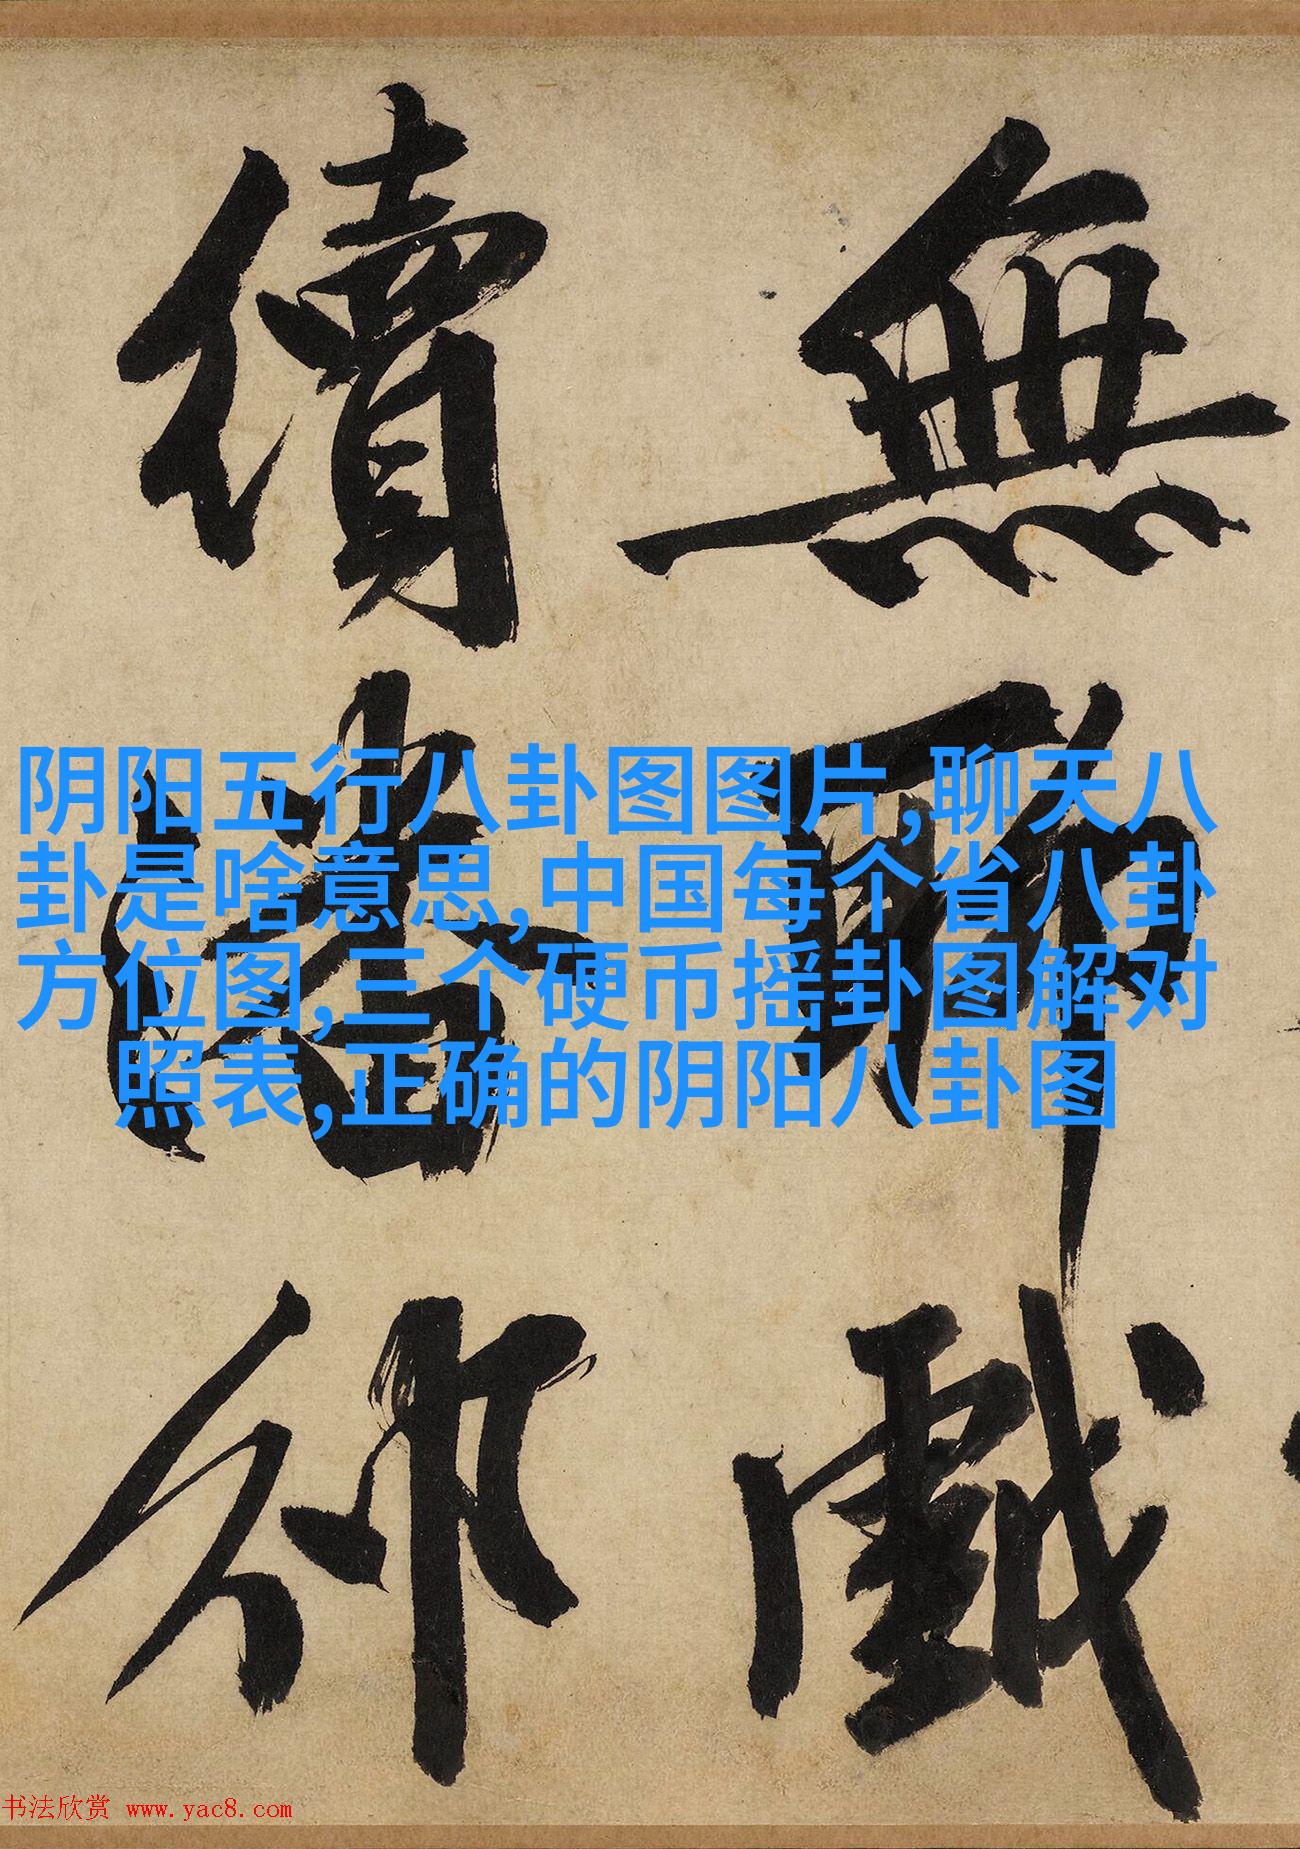 無聊戲
阴阳五行八卦图图片,聊天八
卦是啥意思,中国每个省八卦
方位图,三个硬币摇卦图解对
照表,正确的阴阳八卦图
书法欣赏 www.yac8.com